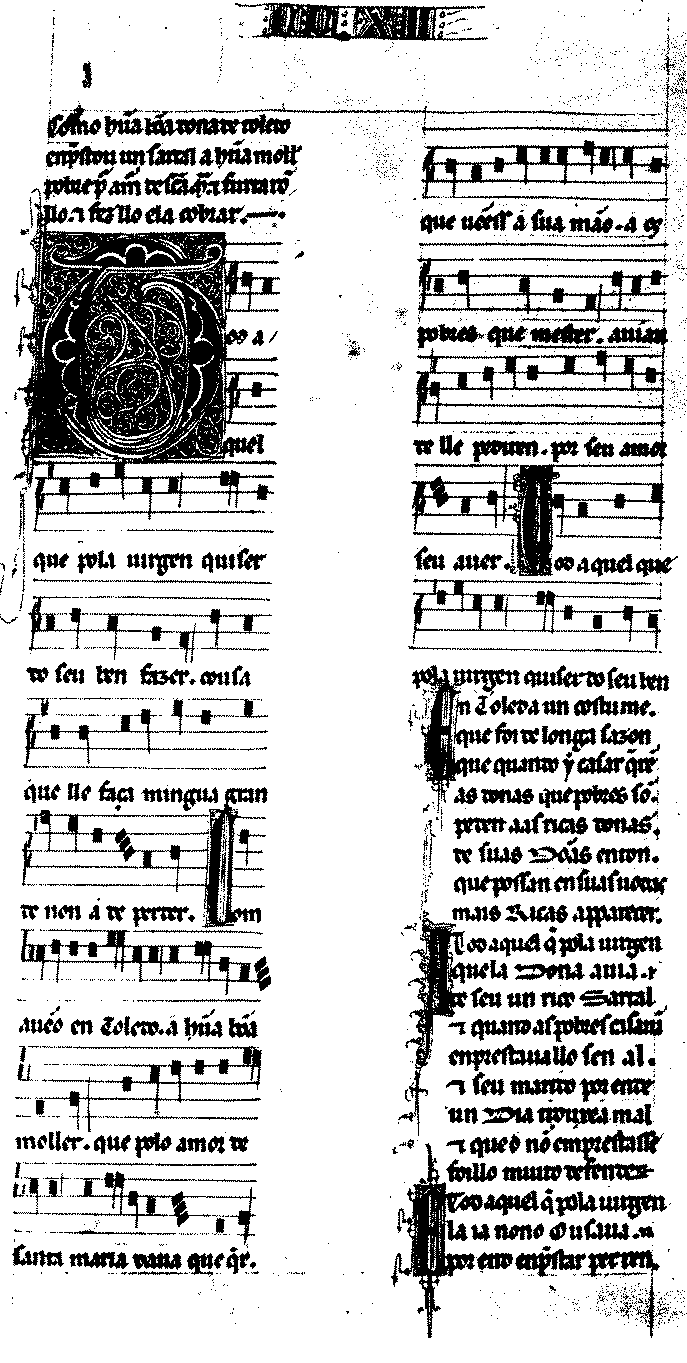 Como hũa bõa dona de toledo
enpṡtou un sartal a hũa moll̃
pobre
llo. ⁊ fez llo ela cobrar.
od a
quel
que pola uirgen quiser
do seu ben fazer. cousa
que lle faça mingua gran
de non á de perder. om
aueo en Toledo. a hũa bõa
moller. que polo amor de
santa maria daua que q̃r.
que ueess á sua mão. a
pobres que mester. auian
de lle pediren. por seu amor
seu auer. od a quel que
pola uirgen quiser do seu ben
n Toleda un costume.
que foi de longa sazon
que quando y casar q̃re
as donas que pobres sõ.
peden aas ricas donas.
de suas Dõas enton.
que possan en suas uodas
mais Ricas appareçer.
Tod aquel q̃ pola uirgen
quela Dona auia.
de seu un rico Sartal
⁊ quand as pobres
enprestaua llo sen al.
⁊ seu marido por ende
un Dia trouxea mal
⁊ que o nõ emprestasse
foi llo muito
Tod aquel q̃ pola uirgen
la ia nono Ousaua.
por end enp̃star per ren.